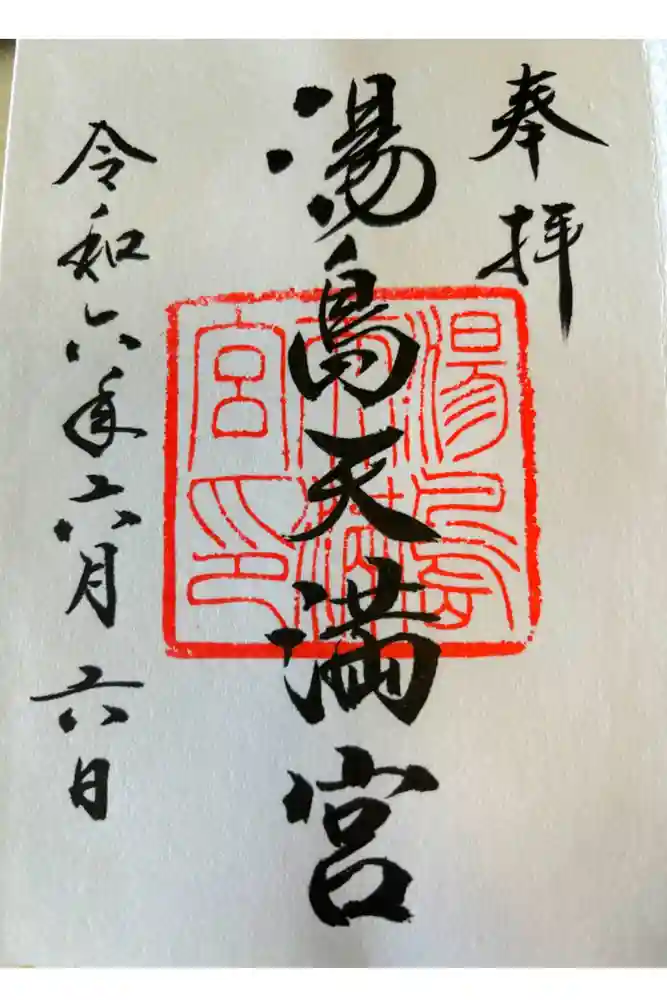 奉拝
湯島天満宮
湯島天満宮印
令和六年六月六日